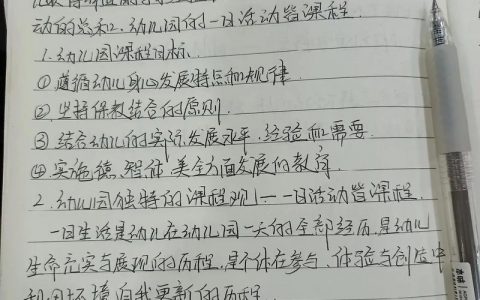 动的总和、幼儿园的一日活动皆课程.
1.幼儿园课程目标.
①遵循幼儿身心发展特点和规律
②坚持保教结合的原则.
③结合幼儿的实际发展水平、经验和需要.
④实施德、智、体、美全方面发展的教育
2.幼儿园独特的课程观——一日活动皆课程.
一日生活是幼儿在幼儿园一天的全部经历,是幼儿
生命充实与展现的历程,是个体在参与、体验与创造中
利用环境自我更新的历程